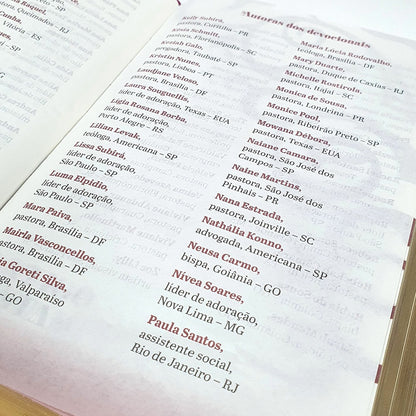 Autoras dos devocionais
Kelly Subirá,
pastora, Curitiba – PR
Kesia Schmitt,
pastora, Florianópolis – SC
Keziah Galo,
pregadora, Taubaté – SP
Kristin Nunes,
pastora, Lisboa – PT
Laudjane Veloso,
pastora, Brasília – DF
Laura Souguellis,
líder de adoração, Texas – EUA
Lígia Rosana Borba,
líder de adoração,
Porto Alegre – RS
Lilian Levak,
teóloga, Americana – SP
Lissa Subirá,
líder de adoração,
São Paulo – SP
Luma Elpídio,
líder de adoração,
São Paulo – SP
Mara Paiva,
pastora, Brasília – DF
Mairla Vasconcellos,
pastora, Brasília – DF
Goreti Silva,
Valparaíso
– GO
Maria Lúcia Rodovalho,
teóloga, Brasília – DF
Mary Duarte,
pastora, Duque de Caxias – RJ
Michelle Pietricola,
pastora, Itajaí – SC
Monica de Sousa,
pastora, Londrina – PR
Monice Pool,
pastora, Ribeirão Preto – SP
Mowana Débora,
pastora, Texas – EUA
Naiane Camara,
pastora, São José dos
Campos – SP
Naine Martins,
pastora, São José dos
Pinhais – PR
Nana Estrada,
pastora, Joinville – SC
Nathália Konno,
advogada, Americana – SP
Neusa Carmo,
bispa, Goiânia – GO
Nívea Soares,
líder de adoração,
Nova Lima – MG
Paula Santos,
assistente social,
Rio de Janeiro – RJ